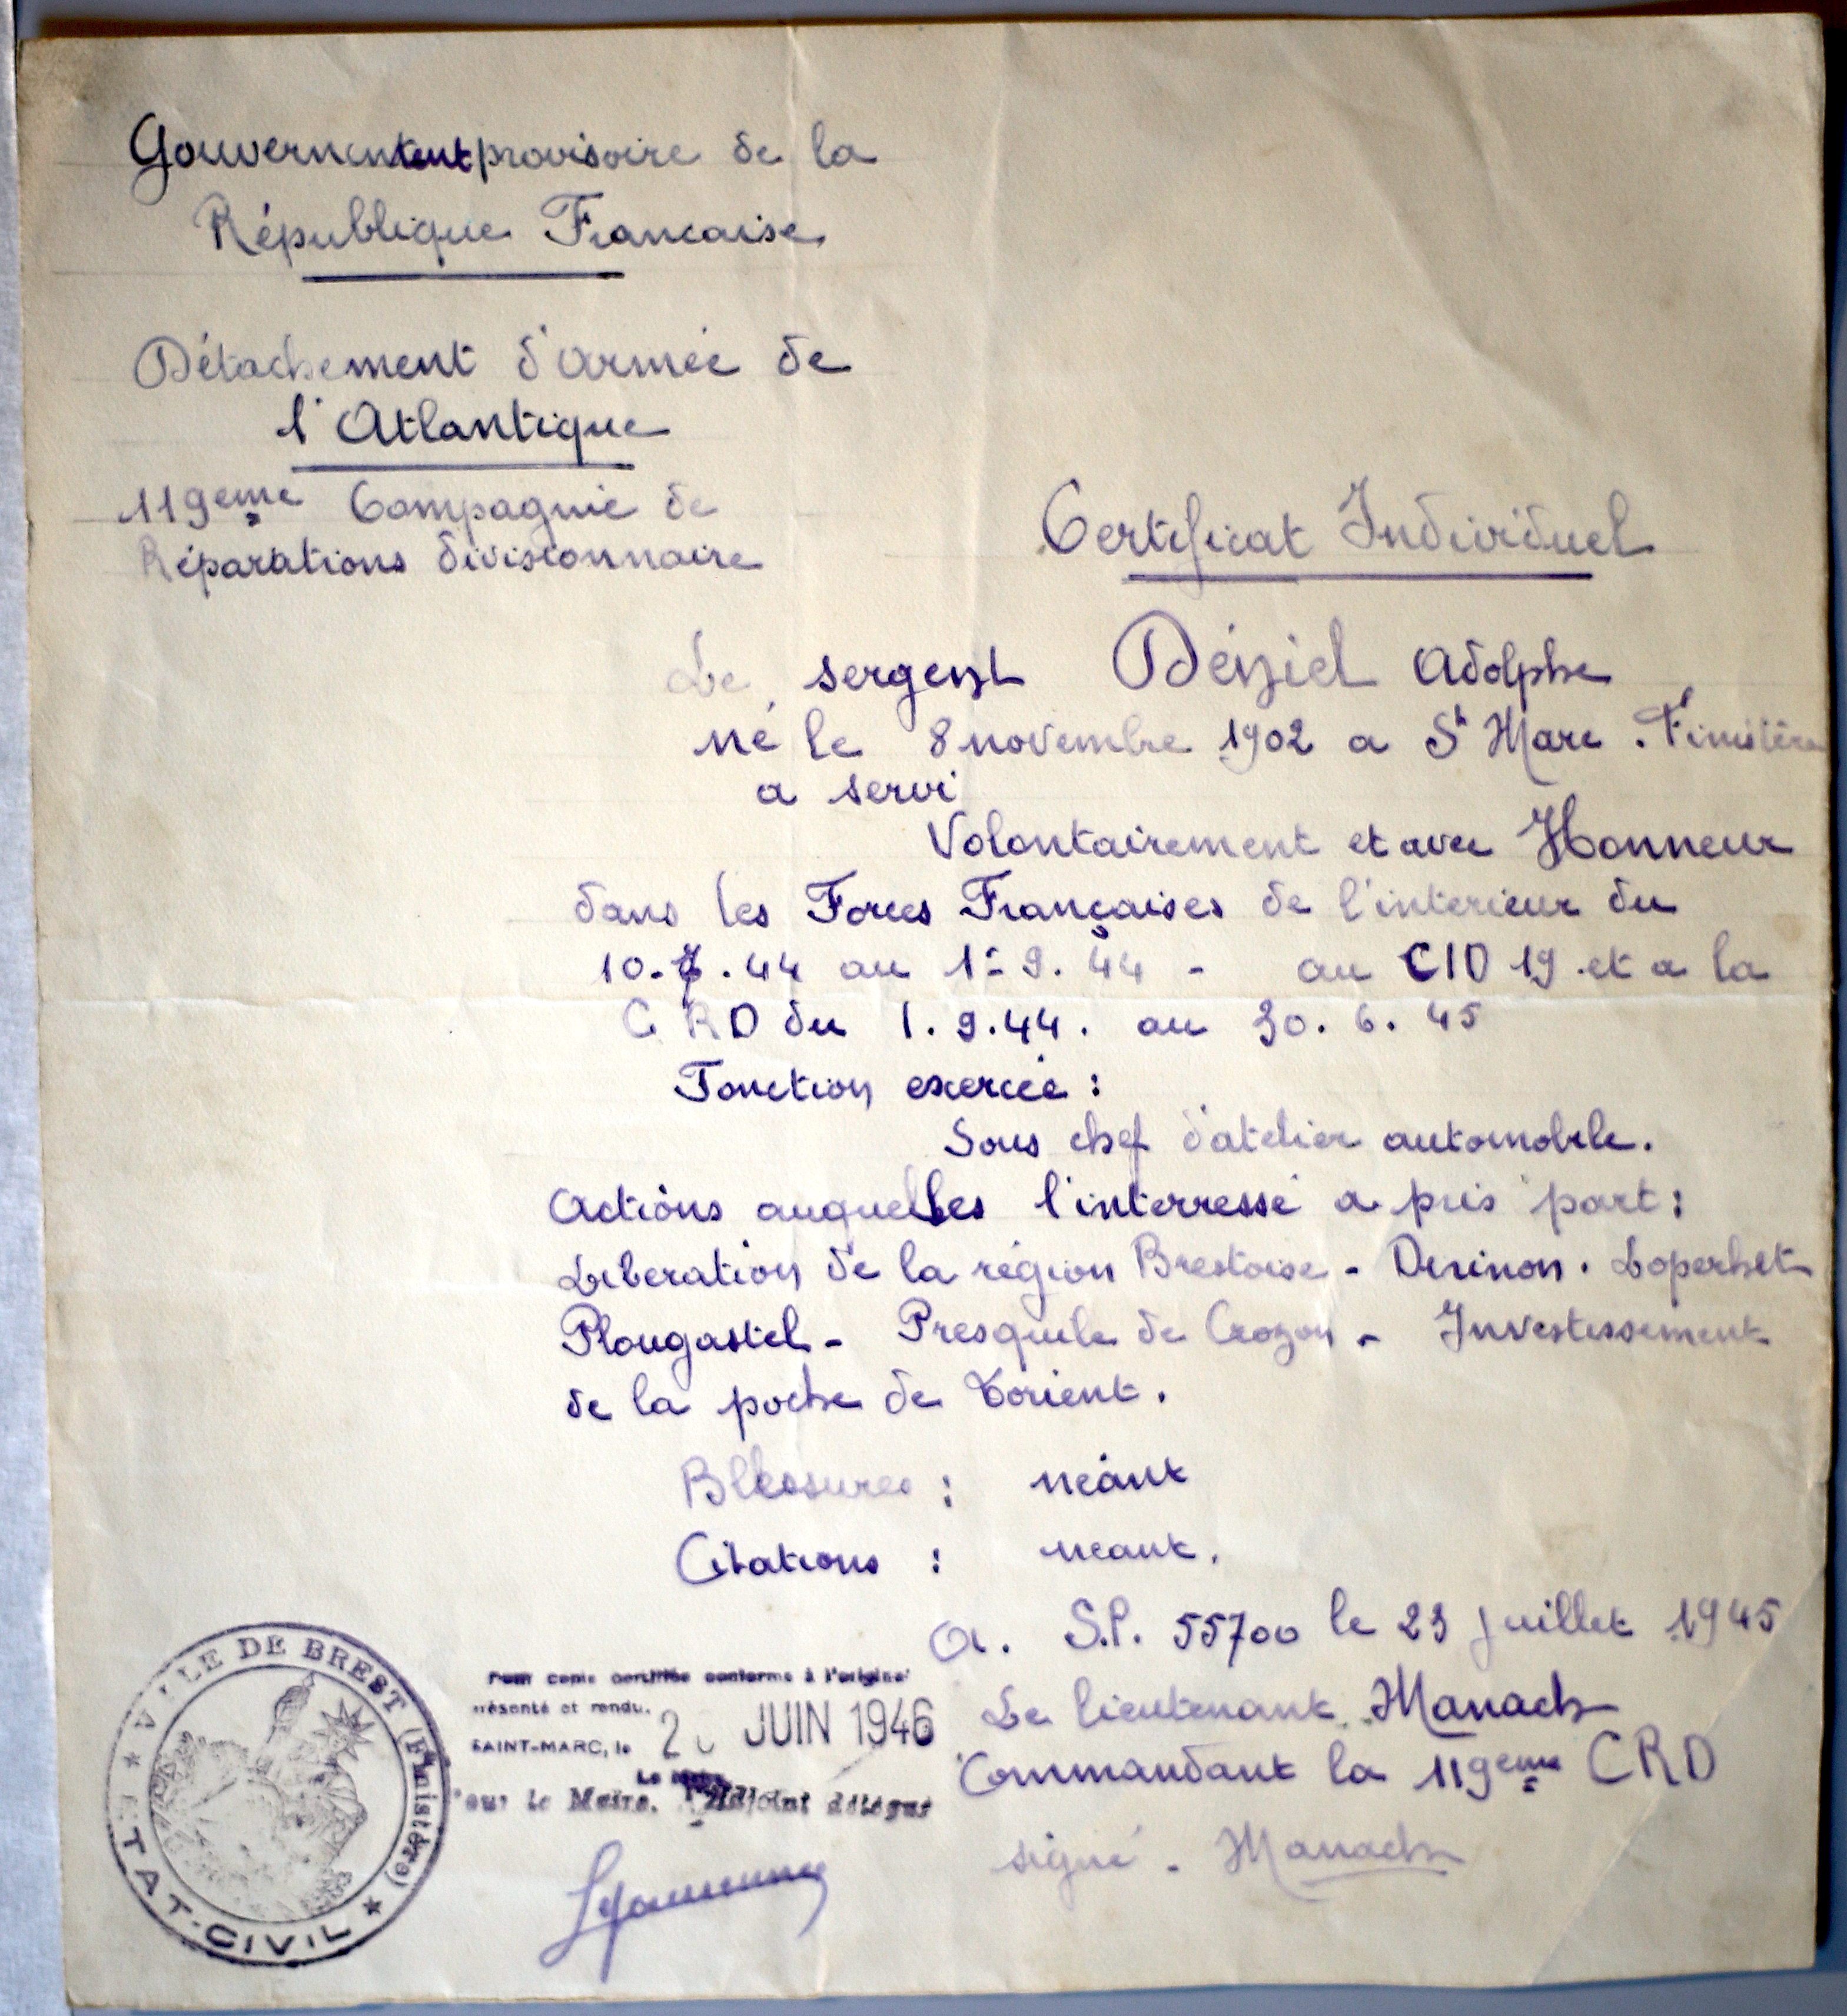 Gouvernement provisoire de la
République Francaise
Détachement d'armée de
l'Atlantique
119eme Compagnie de
Réparations divisionnaire
Certificat Individuel
Le sergent Déniel Adolphe
né le 8 novembre 1902 a St Marc . Finistère
a servi
Volontairement et avec Honneur
dans les Forces Françaises de l'interieur du
10. . 44 au 1- 9. 44 - au CID 19 et a la
C RD du 1. 9. 44. au 30. 6. 45
Fonction exercée :
Sous chef d'atelier automobile.
Actions auquelles l'interressé a pris part :
Liberation de la région Brestoise - Dirinon . Loperhet
Plougastel - Presquile de Crozon - Investissement
de la poche de Lorient.
Blessures : néant
Citations : neant.
A. S.P. 55700 le 23 juillet 1945
Le lieutenant Manach
Commandant la 119eme CRD
signé - Manach
Pour copie certifiée conforme à l'original
présenté et rendu.
SAINT-MARC, le 2 JUIN 1946
Le Maire,
Pour le Maire, l'Adjoint délégué
VILLE DE BREST (Finistère)
★ ETAT-CIVIL ★